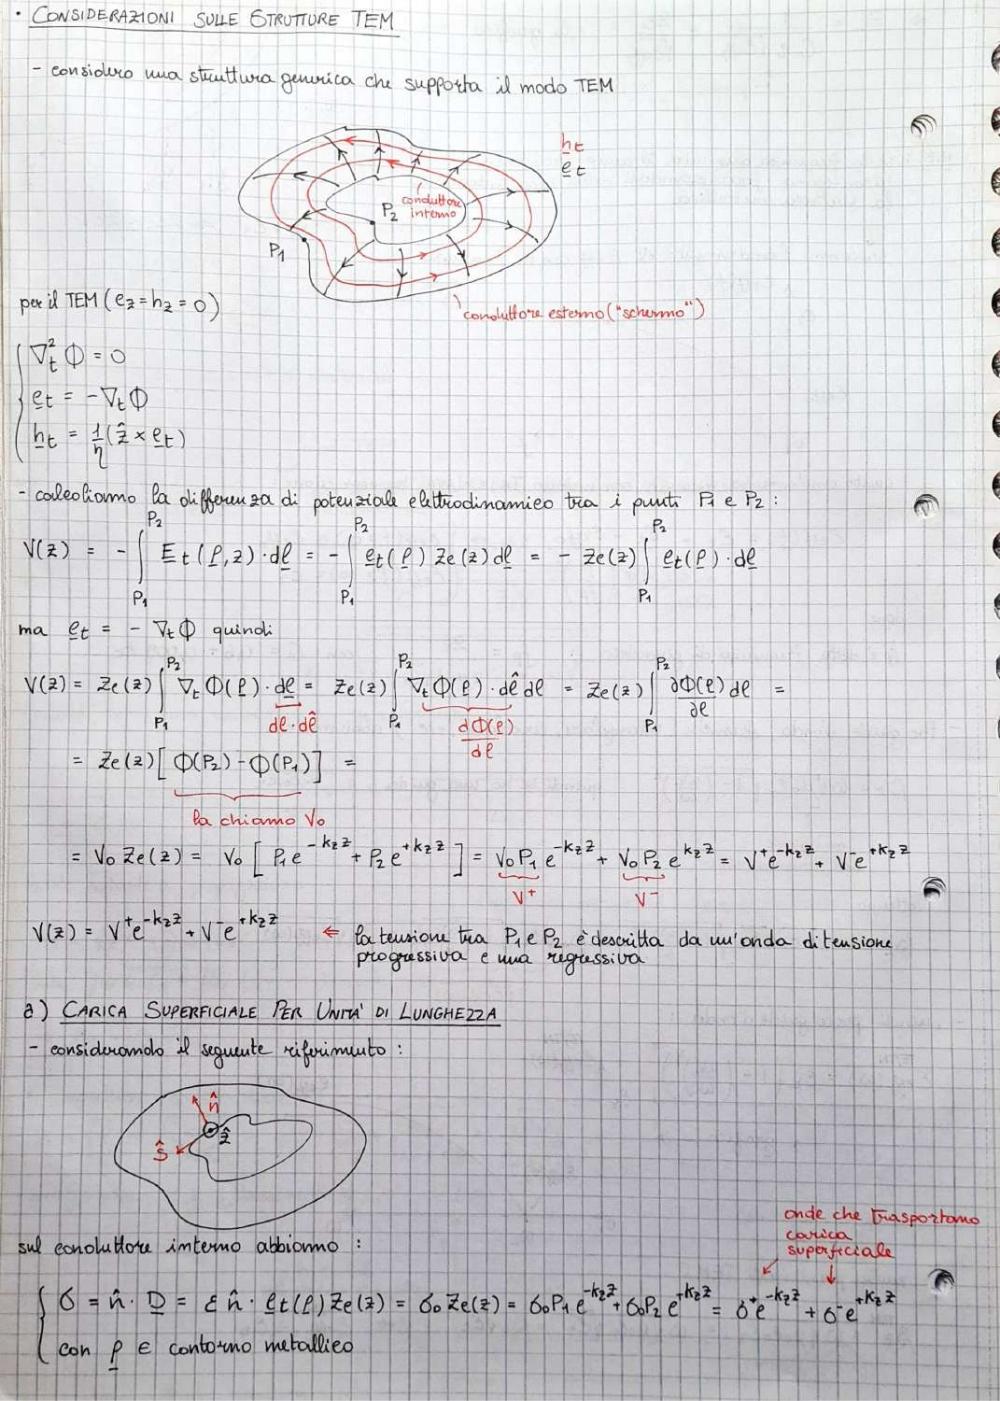 · CONSIDERAZIONI SULLE STRUTTURE TEM
- considero una struttura generica che supporta il modo TEM
h_t
e_t
conduttore
interno
P_2
P_1
conduttore esterno ("schermo")
per il TEM (e_z = h_z = 0)
∇_t^2 Φ = 0
e_t = -∇_t Φ
h_t = 1/η (ẑ × e_t)
- calcoliamo la differenza di potenziale elettrodinamico tra i punti P_1 e P_2 :
V(z) = - ∫_{P_1}^{P_2} E_t(ρ,z) · dl = - ∫_{P_1}^{P_2} e_t(ρ) Z_e(z) dl = - Z_e(z) ∫_{P_1}^{P_2} e_t(ρ) · dl
ma e_t = - ∇_t Φ quindi
V(z) = Z_e(z) ∫_{P_1}^{P_2} ∇_t Φ(ρ) · dl = Z_e(z) ∫_{P_1}^{P_2} ∇_t Φ(ρ) · dl̂ dl = Z_e(z) ∫_{P_1}^{P_2} ∂Φ(ρ)/∂l dl =
dl · dl̂
dΦ(ρ)/dl
= Z_e(z) [ Φ(P_2) - Φ(P_1) ] =
la chiamo V_0
= V_0 Z_e(z) = V_0 [ P_1 e^{-k_z z} + P_2 e^{+k_z z} ] = V_0 P_1 e^{-k_z z} + V_0 P_2 e^{k_z z} = V^+ e^{-k_z z} + V^- e^{+k_z z}
V^+
V^-
V(z) = V^+ e^{-k_z z} + V^- e^{+k_z z} ⇐ la tensione tra P_1 e P_2 è descritta da un'onda di tensione
progressiva e una regressiva
a) CARICA SUPERFICIALE PER UNITA' DI LUNGHEZZA
- considerando il seguente riferimento :
n̂
ẑ
ŝ
onde che trasportano
carica
superficiale
sul conduttore interno abbiamo :
σ = n̂ · D = ε n̂ · e_t(ρ) Z_e(z) = σ_0 Z_e(z) = σ_0 P_1 e^{-k_z z} + σ_0 P_2 e^{+k_z z} = σ^+ e^{-k_z z} + σ^- e^{+k_z z}
con ρ ∈ contorno metallico